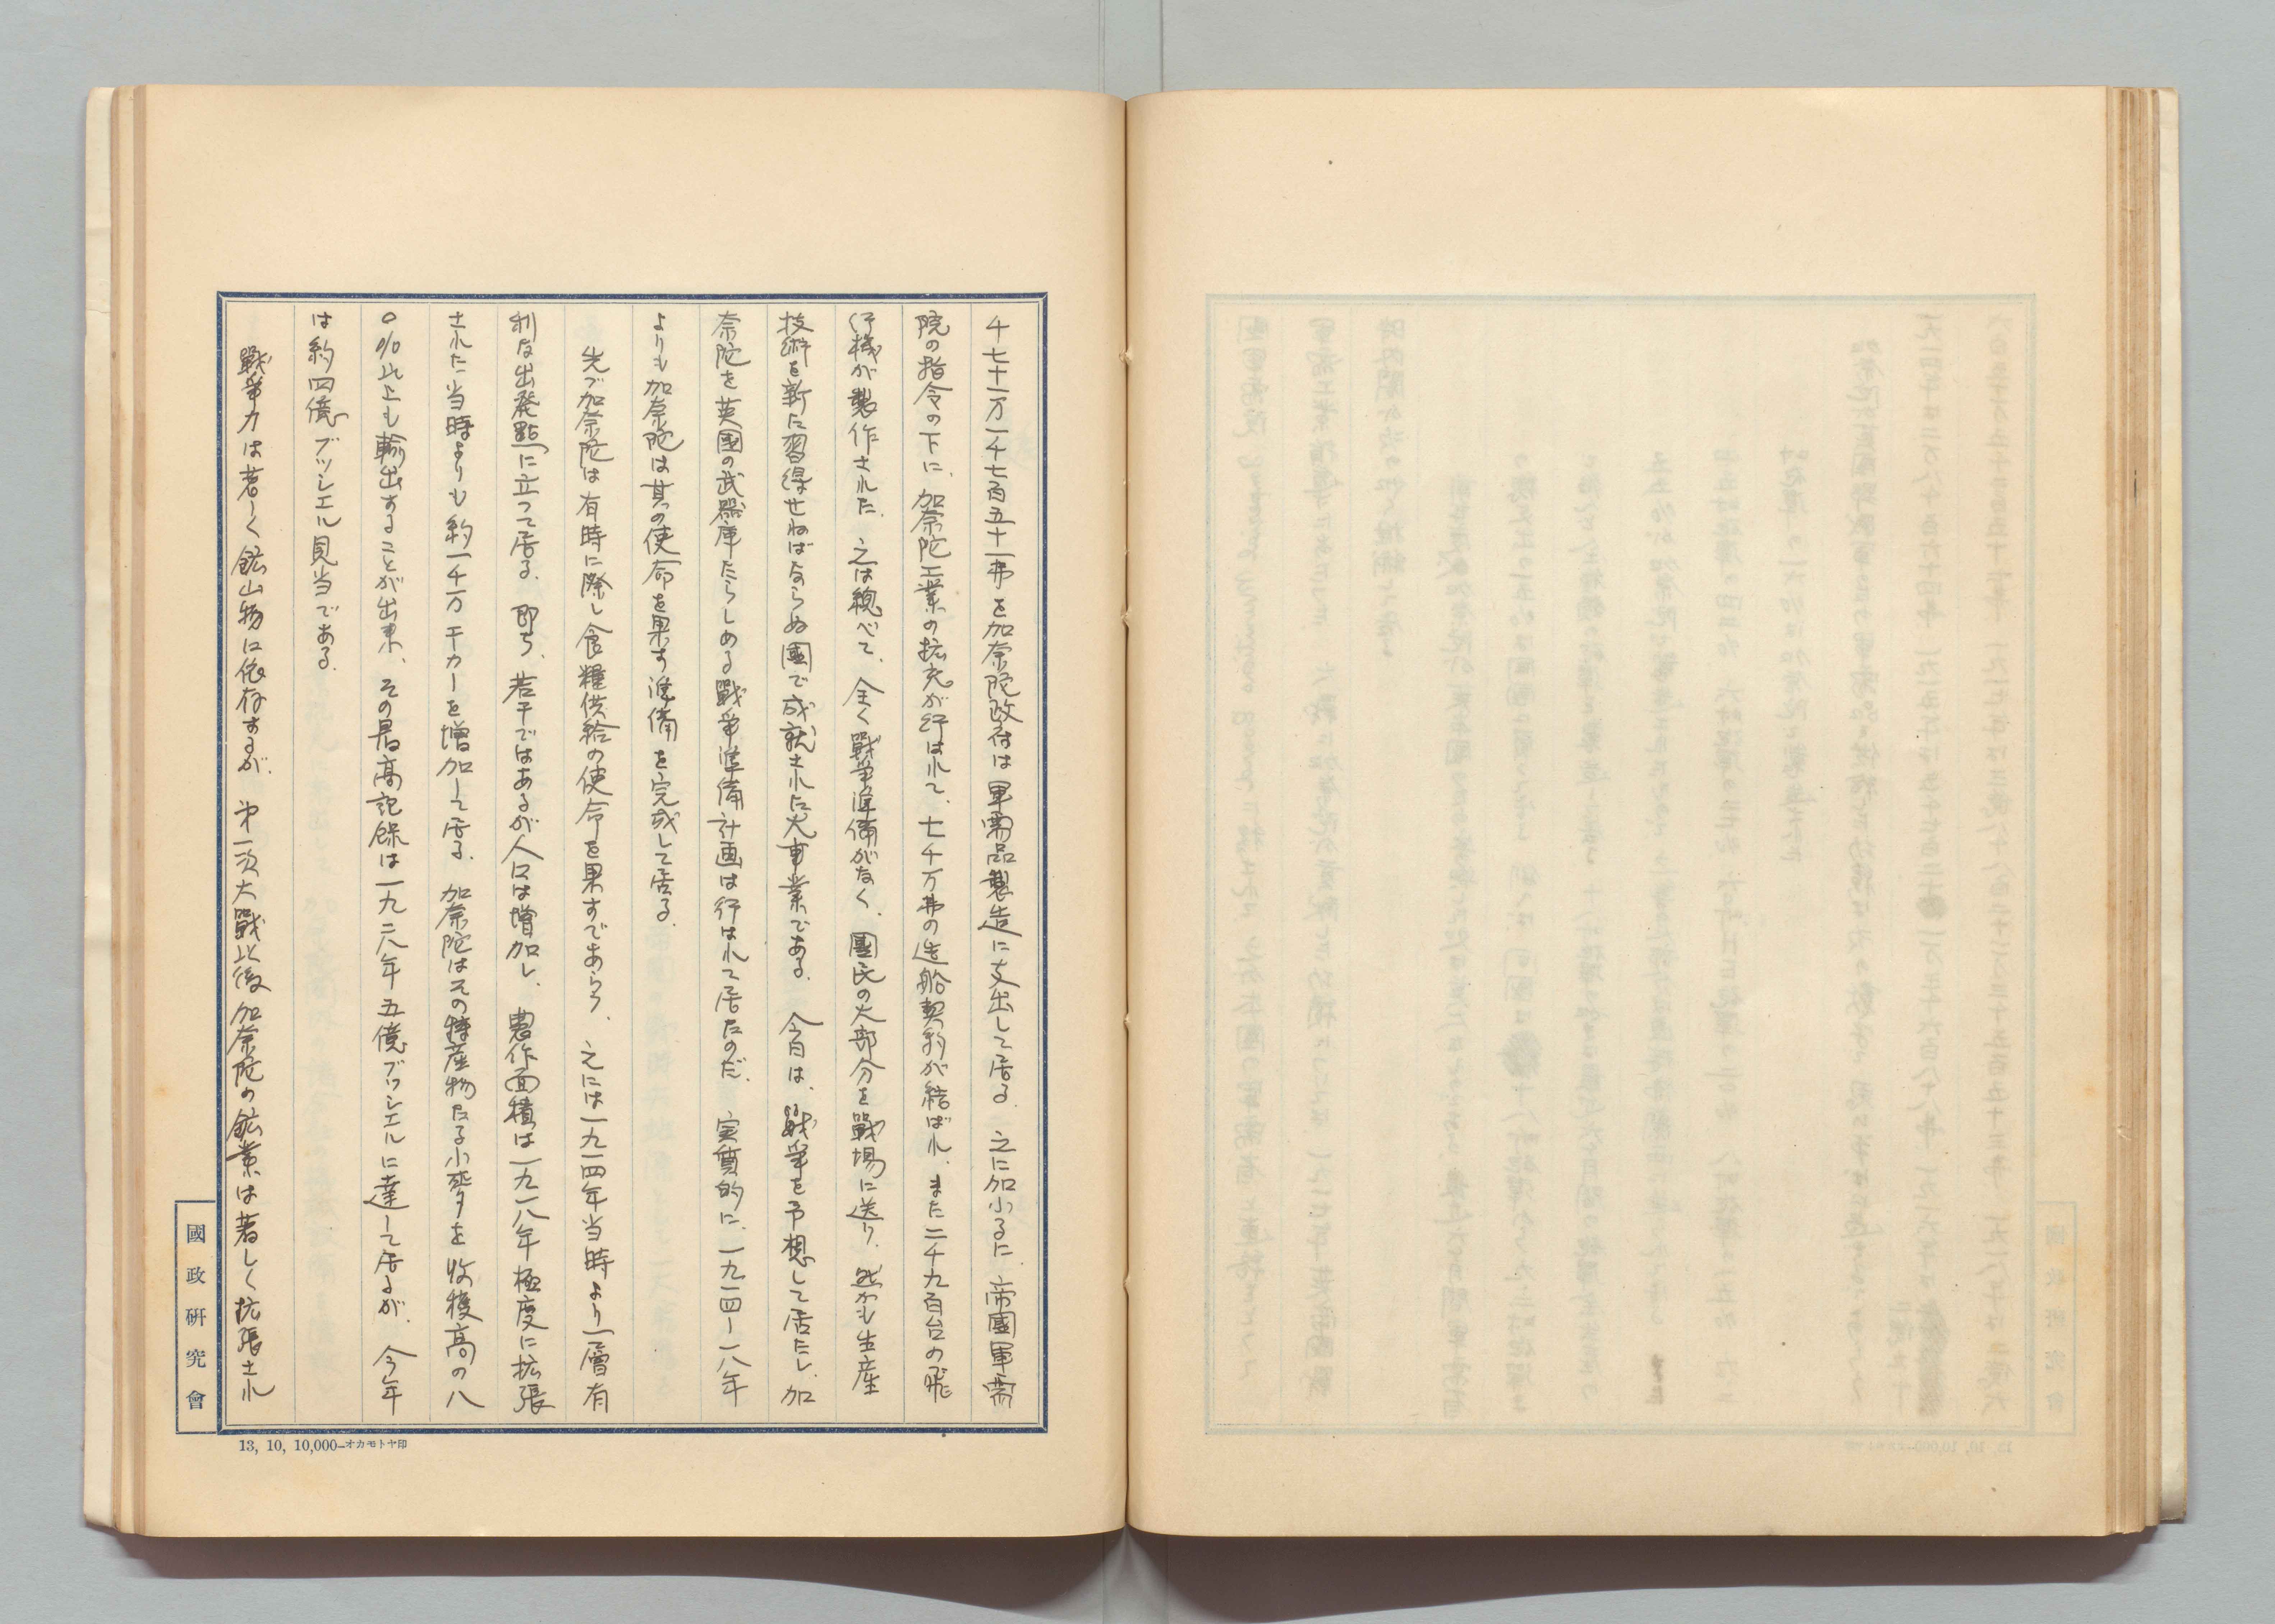 千七十一万一千七百五十一弗を加奈陀政府は軍需品製造に支出して居る．之に加ふるに帝國軍需
院の指令の下に．加奈陀工業の拡充が行はれて．七千万弗の造船契約が結ばれ．また二千九百台の飛
行機が製作された．之は總べて．全く戰爭準備がなく．國民の大部分を戰場に送り．然かも生産
技術を新に習得せねばならぬ國で成就された大事業である．今日は．戰爭を予想して居たし．加
奈陀を英國の武器庫たらしめる戰爭準備計画は行はれて居たのだ．実質的に．一九一四ー一八年
よりも加奈陀は其の使命を果す準備を完成して居る．
先づ加奈陀は有時に際し食糧供給の使命を果すであらう．之には一九一四年当時より一層有
利な出発點に立つて居る．即ち．若干ではあるが人口は増加し．農作面積は一九一八年極度に拡張
された当時よりも約一千万エカーを増加して居る．加奈陀はその特産物たる小麥を收穫高の八
〇％以上も輸出することが出来．その最高記録は一九二八年五億ブッシエルに達して居るが．今年
は約四億ブッシエル見当である．
戰爭力は著しく鉱山物に依存するが．第一次大戰以後加奈陀の鉱業は著しく拡張され
國政研究會
13, 10, 10,000—オカモトヤ印